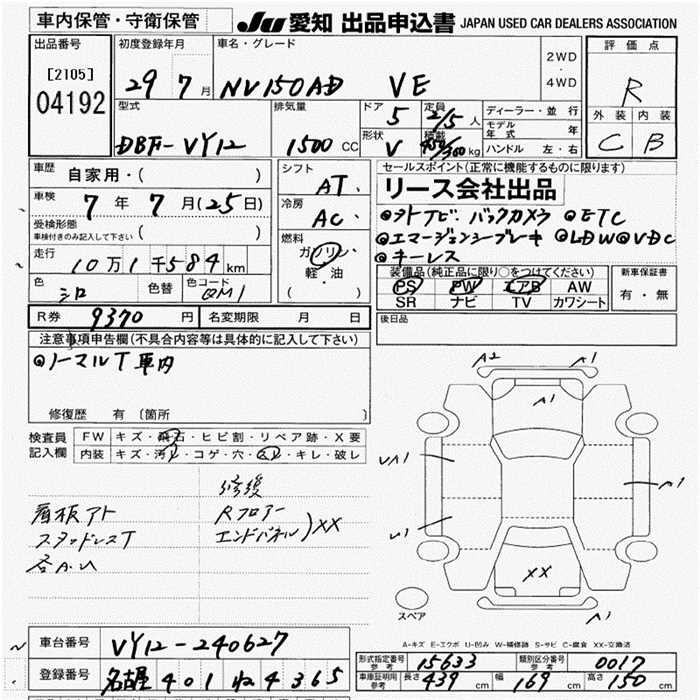 車内保管・守衛保管
JU 愛知 出品申込書 JAPAN USED CAR DEALERS ASSOCIATION
出品番号
[2105]
04192
初度登録年月
29 7 月
車名・グレード
NV150AD VE
2WD
・
4WD
評価点
R
外装 内装
C B
型式
DBF-VY12
排気量
1500 CC
ドア
5
定員
2/5 人
形状
V
積載
450/300 kg
ディーラー・並行
モデル年式 年
ハンドル 左・右
車歴
自家用・( )
車検
7 年 7 月 (25日)
受検形態
車検付きのみ記入して下さい ( )
走行
10万1千584 km
色
シロ
色替
色コード
QM1
シフト
AT.
冷房
AC.
燃料
ガソリン
軽・油
( )
セールスポイント(正常に機能するものに限ります)
リース会社出品
◎外ナビ・バックカメラ ◎ETC
◎エマージェンシーブレーキ ◎LDW◎VDC
◎キーレス
装備品(純正品に限り○をつけてください)
PS PW エアB AW
SR ナビ TV カワシート
新車保証書
有・無
R券 9370 円 名変期限 月 日
後日品
注意事項申告欄(不具合内容等は具体的に記入して下さい)
◎ノーマルT車内
修復歴 有 〔箇所 〕
検査員
記入欄
FW キズ・飛石・ヒビ割・リペア跡・X要
内装 キズ・汚れ・コゲ・穴・スレ・キレ・破レ
修復
看板アト Rフロアー
スタッドレスT エンドパネル)XX
各A.U
A2 A1
A1
UA1
A1
U1
XX
A1
スペア
A-キズ E-エクボ U-凹み W-補修跡 S-サビ C-腐食 XX-交換済
車台番号 VY12-240627
登録番号 名古屋 401 ね 4365
形式指定番号
参考
15633
類別区分番号
参考
0017
車庫証明用
参考
長さ 439 cm 幅 169 cm 高さ 150 cm